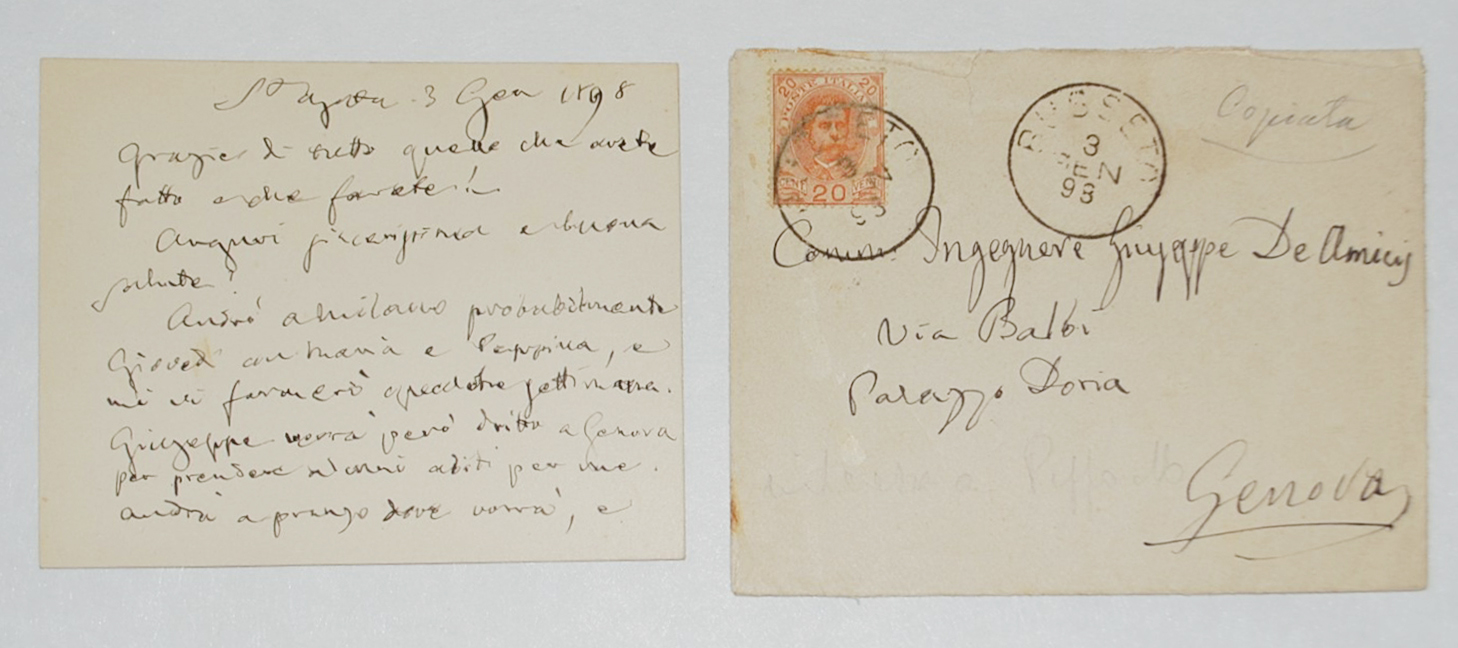 St Agata 3 Gen 1898
Grazie di tutto quello che avete
fatto e che farete!
Auguri sincerissimi e buona
salute!
Andrò a Milano probabilmente
Giovedì con Maria e Peppina, e
mi vi fermerò qualche settimana.
Giuseppe verrà però dritto a Genova
per prendere alcuni abiti per me.
andrà a pranzo dove vorrà, e
POSTE ITALIANE
20 20
CENT 20
BUSSETO
3
GEN
98
Copiata
Comm. Ingegnere Giuseppe De Amicis
Via Balbi
Palazzo Doria
Genova